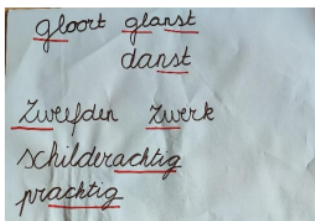 gloort glanst
danst
Zweefden Zwerk
schilderachtig
prachtig